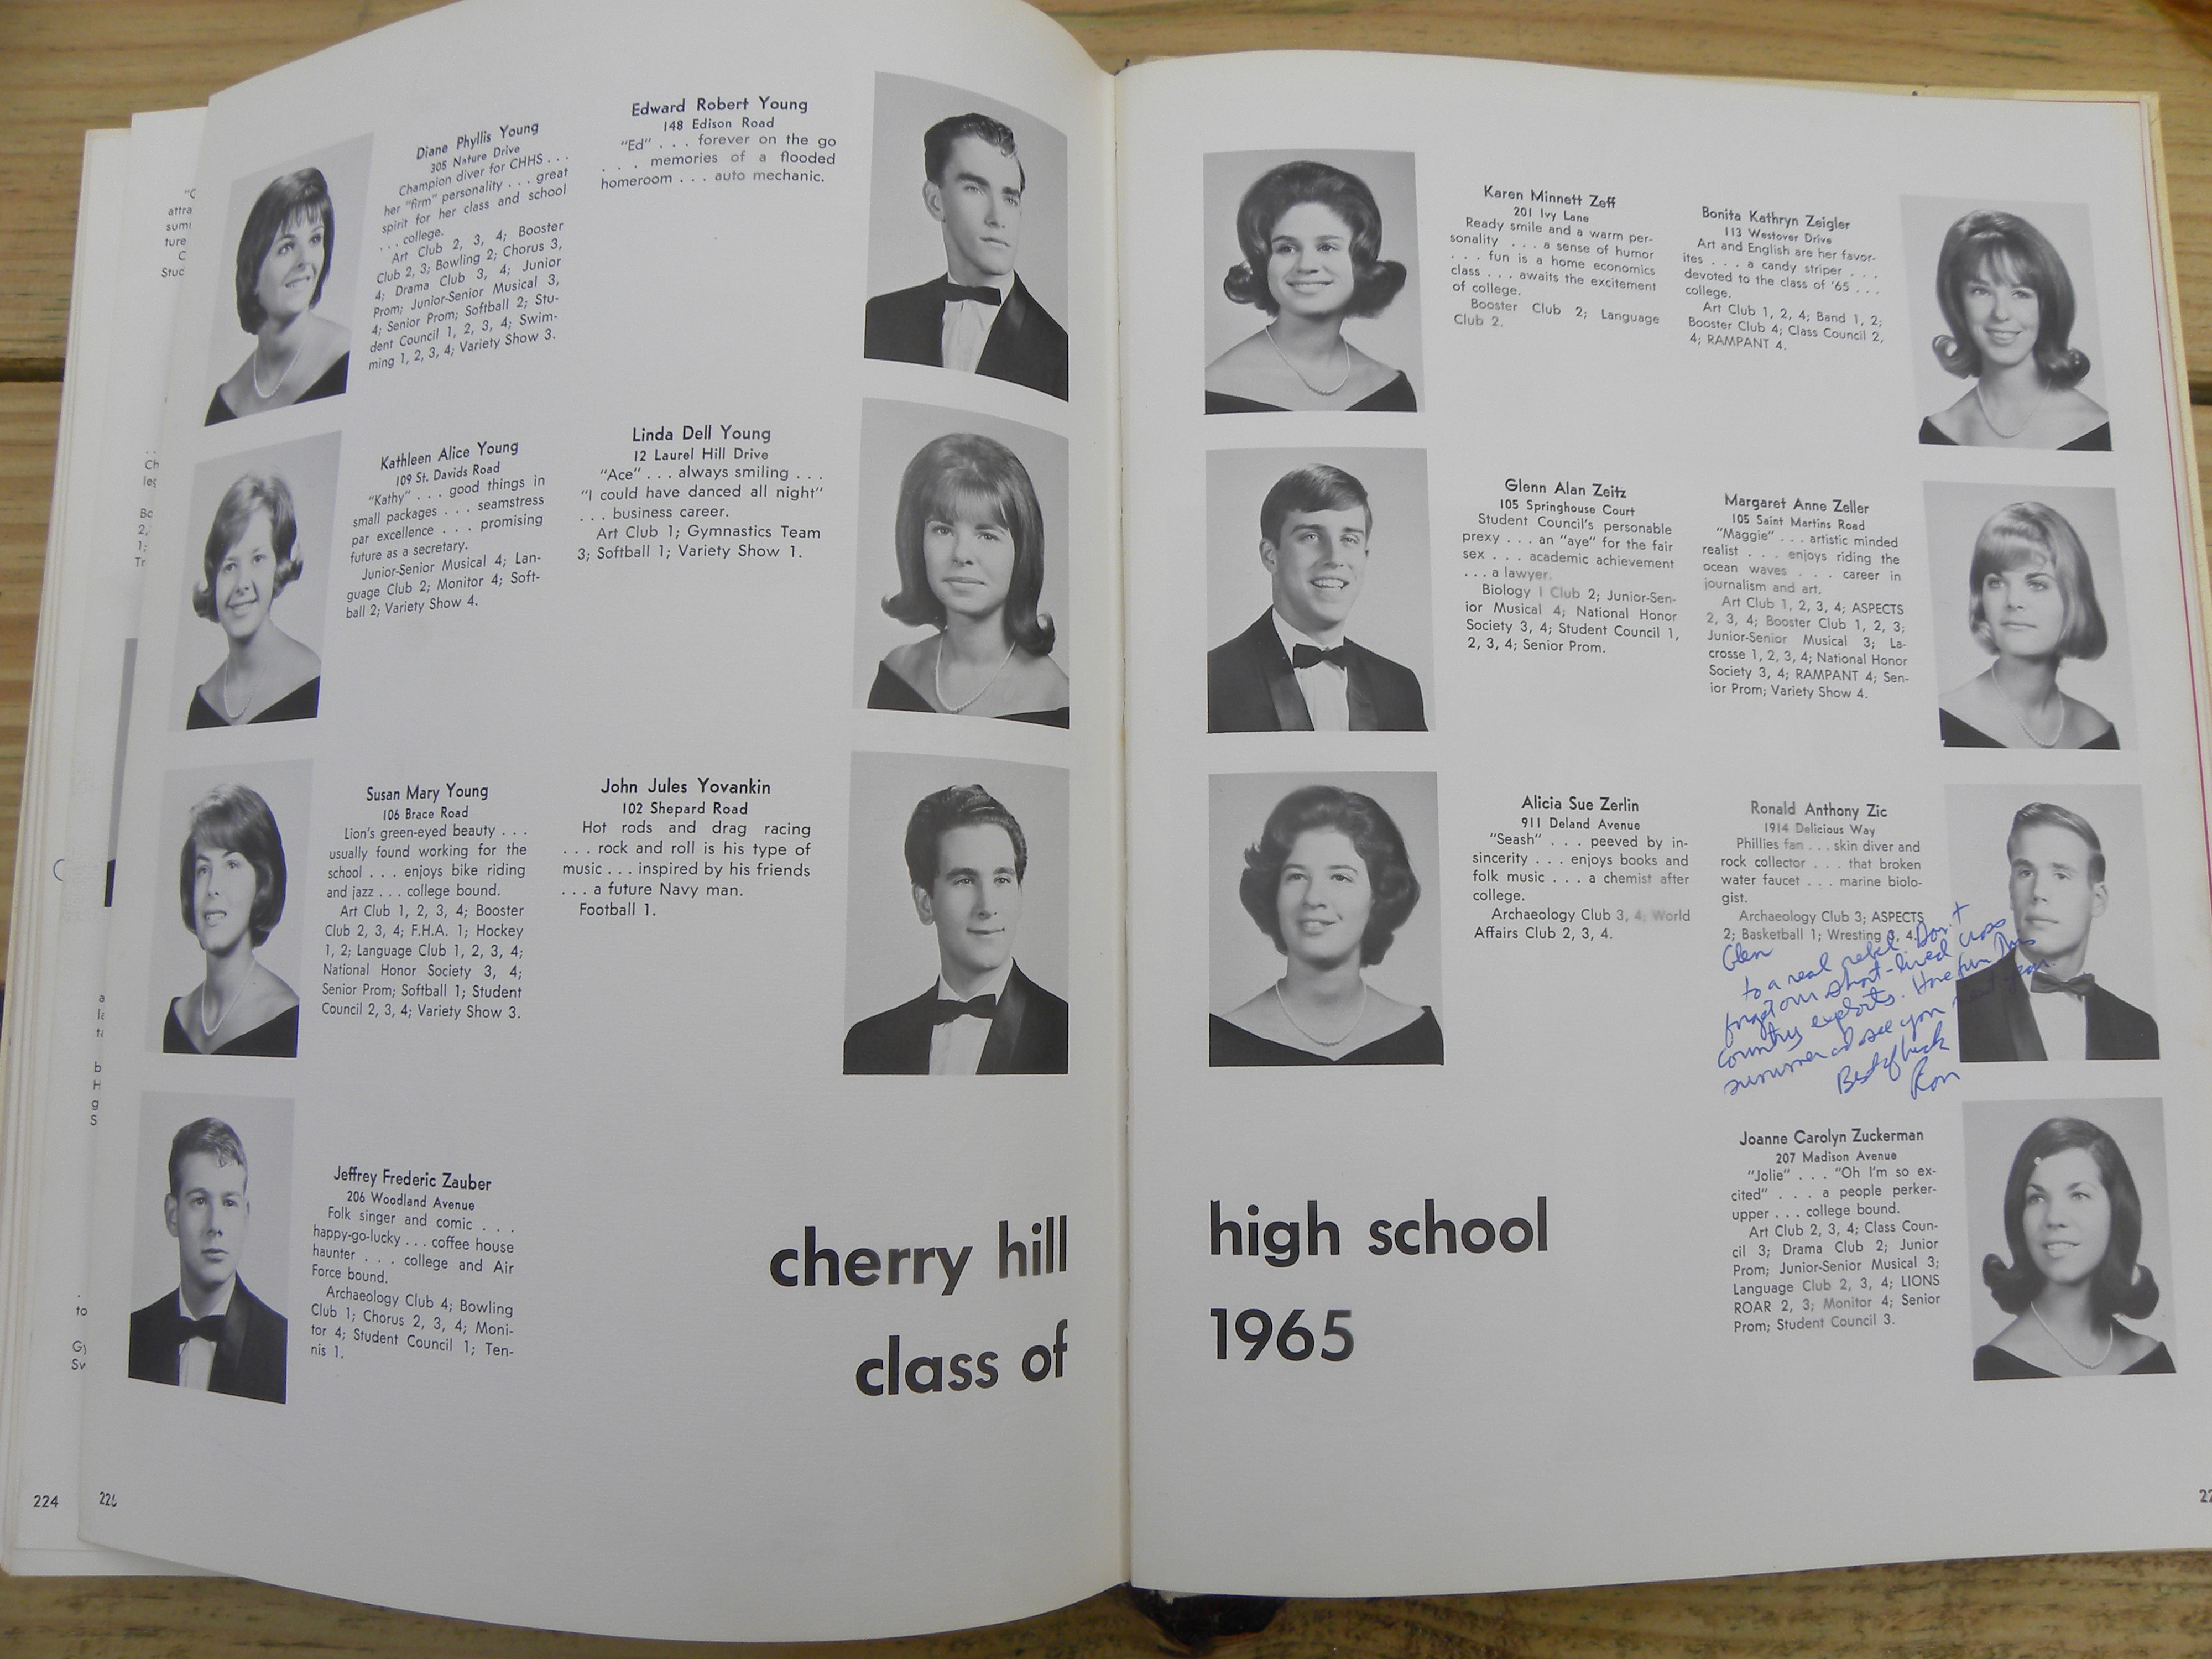 Diane Phyllis Young
305 Nature Drive
Champion diver for CHHS . . .
her "firm" personality . . . great
spirit for her class and school
. . . college.
Art Club 2, 3, 4; Booster
Club 2, 3; Bowling 2; Chorus 3,
4; Drama Club 3, 4; Junior
Prom; Junior-Senior Musical 3,
4; Senior Prom; Softball 2; Stu-
dent Council 1, 2, 3, 4; Swim-
ming 1, 2, 3, 4; Variety Show 3.
Edward Robert Young
148 Edison Road
"Ed" . . . forever on the go
. . . memories of a flooded
homeroom . . . auto mechanic.
Kathleen Alice Young
109 St. Davids Road
"Kathy" . . . good things in
small packages . . . seamstress
par excellence . . . promising
future as a secretary.
Junior-Senior Musical 4; Lan-
guage Club 2; Monitor 4; Soft-
ball 2; Variety Show 4.
Linda Dell Young
12 Laurel Hill Drive
"Ace" . . . always smiling . . .
"I could have danced all night"
. . . business career.
Art Club 1; Gymnastics Team
3; Softball 1; Variety Show 1.
Susan Mary Young
106 Brace Road
Lion's green-eyed beauty . . .
usually found working for the
school . . . enjoys bike riding
and jazz . . . college bound.
Art Club 1, 2, 3, 4; Booster
Club 2, 3, 4; F.H.A. 1; Hockey
1, 2; Language Club 1, 2, 3, 4;
National Honor Society 3, 4;
Senior Prom; Softball 1; Student
Council 2, 3, 4; Variety Show 3.
John Jules Yovankin
102 Shepard Road
Hot rods and drag racing
. . . rock and roll is his type of
music . . . inspired by his friends
. . . a future Navy man.
Football 1.
Jeffrey Frederic Zauber
206 Woodland Avenue
Folk singer and comic . . .
happy-go-lucky . . . coffee house
haunter . . . college and Air
Force bound.
Archaeology Club 4; Bowling
Club 1; Chorus 2, 3, 4; Moni-
tor 4; Student Council 1; Ten-
nis 1.
cherry hill
class of
224
226
Karen Minnett Zeff
201 Ivy Lane
Ready smile and a warm per-
sonality . . . a sense of humor
. . . fun is a home economics
class . . . awaits the excitement
of college.
Booster Club 2; Language
Club 2.
Bonita Kathryn Zeigler
113 Westover Drive
Art and English are her favor-
ites . . . a candy striper . . .
devoted to the class of '65 . . .
college.
Art Club 1, 2, 4; Band 1, 2;
Booster Club 4; Class Council 2,
4; RAMPANT 4.
Glenn Alan Zeitz
105 Springhouse Court
Student Council's personable
prexy . . . an "aye" for the fair
sex . . . academic achievement
. . . a lawyer.
Biology I Club 2; Junior-Sen-
ior Musical 4; National Honor
Society 3, 4; Student Council 1,
2, 3, 4; Senior Prom.
Margaret Anne Zeller
105 Saint Martins Road
"Maggie" . . . artistic minded
realist . . . enjoys riding the
ocean waves . . . career in
journalism and art.
Art Club 1, 2, 3, 4; ASPECTS
2, 3, 4; Booster Club 1, 2, 3;
Junior-Senior Musical 3; La-
crosse 1, 2, 3, 4; National Honor
Society 3, 4; RAMPANT 4; Sen-
ior Prom; Variety Show 4.
Alicia Sue Zerlin
911 Deland Avenue
"Seash" . . . peeved by in-
sincerity . . . enjoys books and
folk music . . . a chemist after
college.
Archaeology Club 3, 4; World
Affairs Club 2, 3, 4.
Ronald Anthony Zic
1914 Delicious Way
Phillies fan . . . skin diver and
rock collector . . . that broken
water faucet . . . marine biolo-
gist.
Archaeology Club 3; ASPECTS
2; Basketball 1; Wresting 3, 4.
Glen
to a real rebel. Don't
forget our short-lived cross
country exploits. Have fun this
summer and see you next year
Best of luck
Ron
Joanne Carolyn Zuckerman
207 Madison Avenue
"Jolie" . . . "Oh I'm so ex-
cited" . . . a people perker-
upper . . . college bound.
Art Club 2, 3, 4; Class Coun-
cil 3; Drama Club 2; Junior
Prom; Junior-Senior Musical 3;
Language Club 2, 3, 4; LIONS
ROAR 2, 3; Monitor 4; Senior
Prom; Student Council 3.
high school
1965